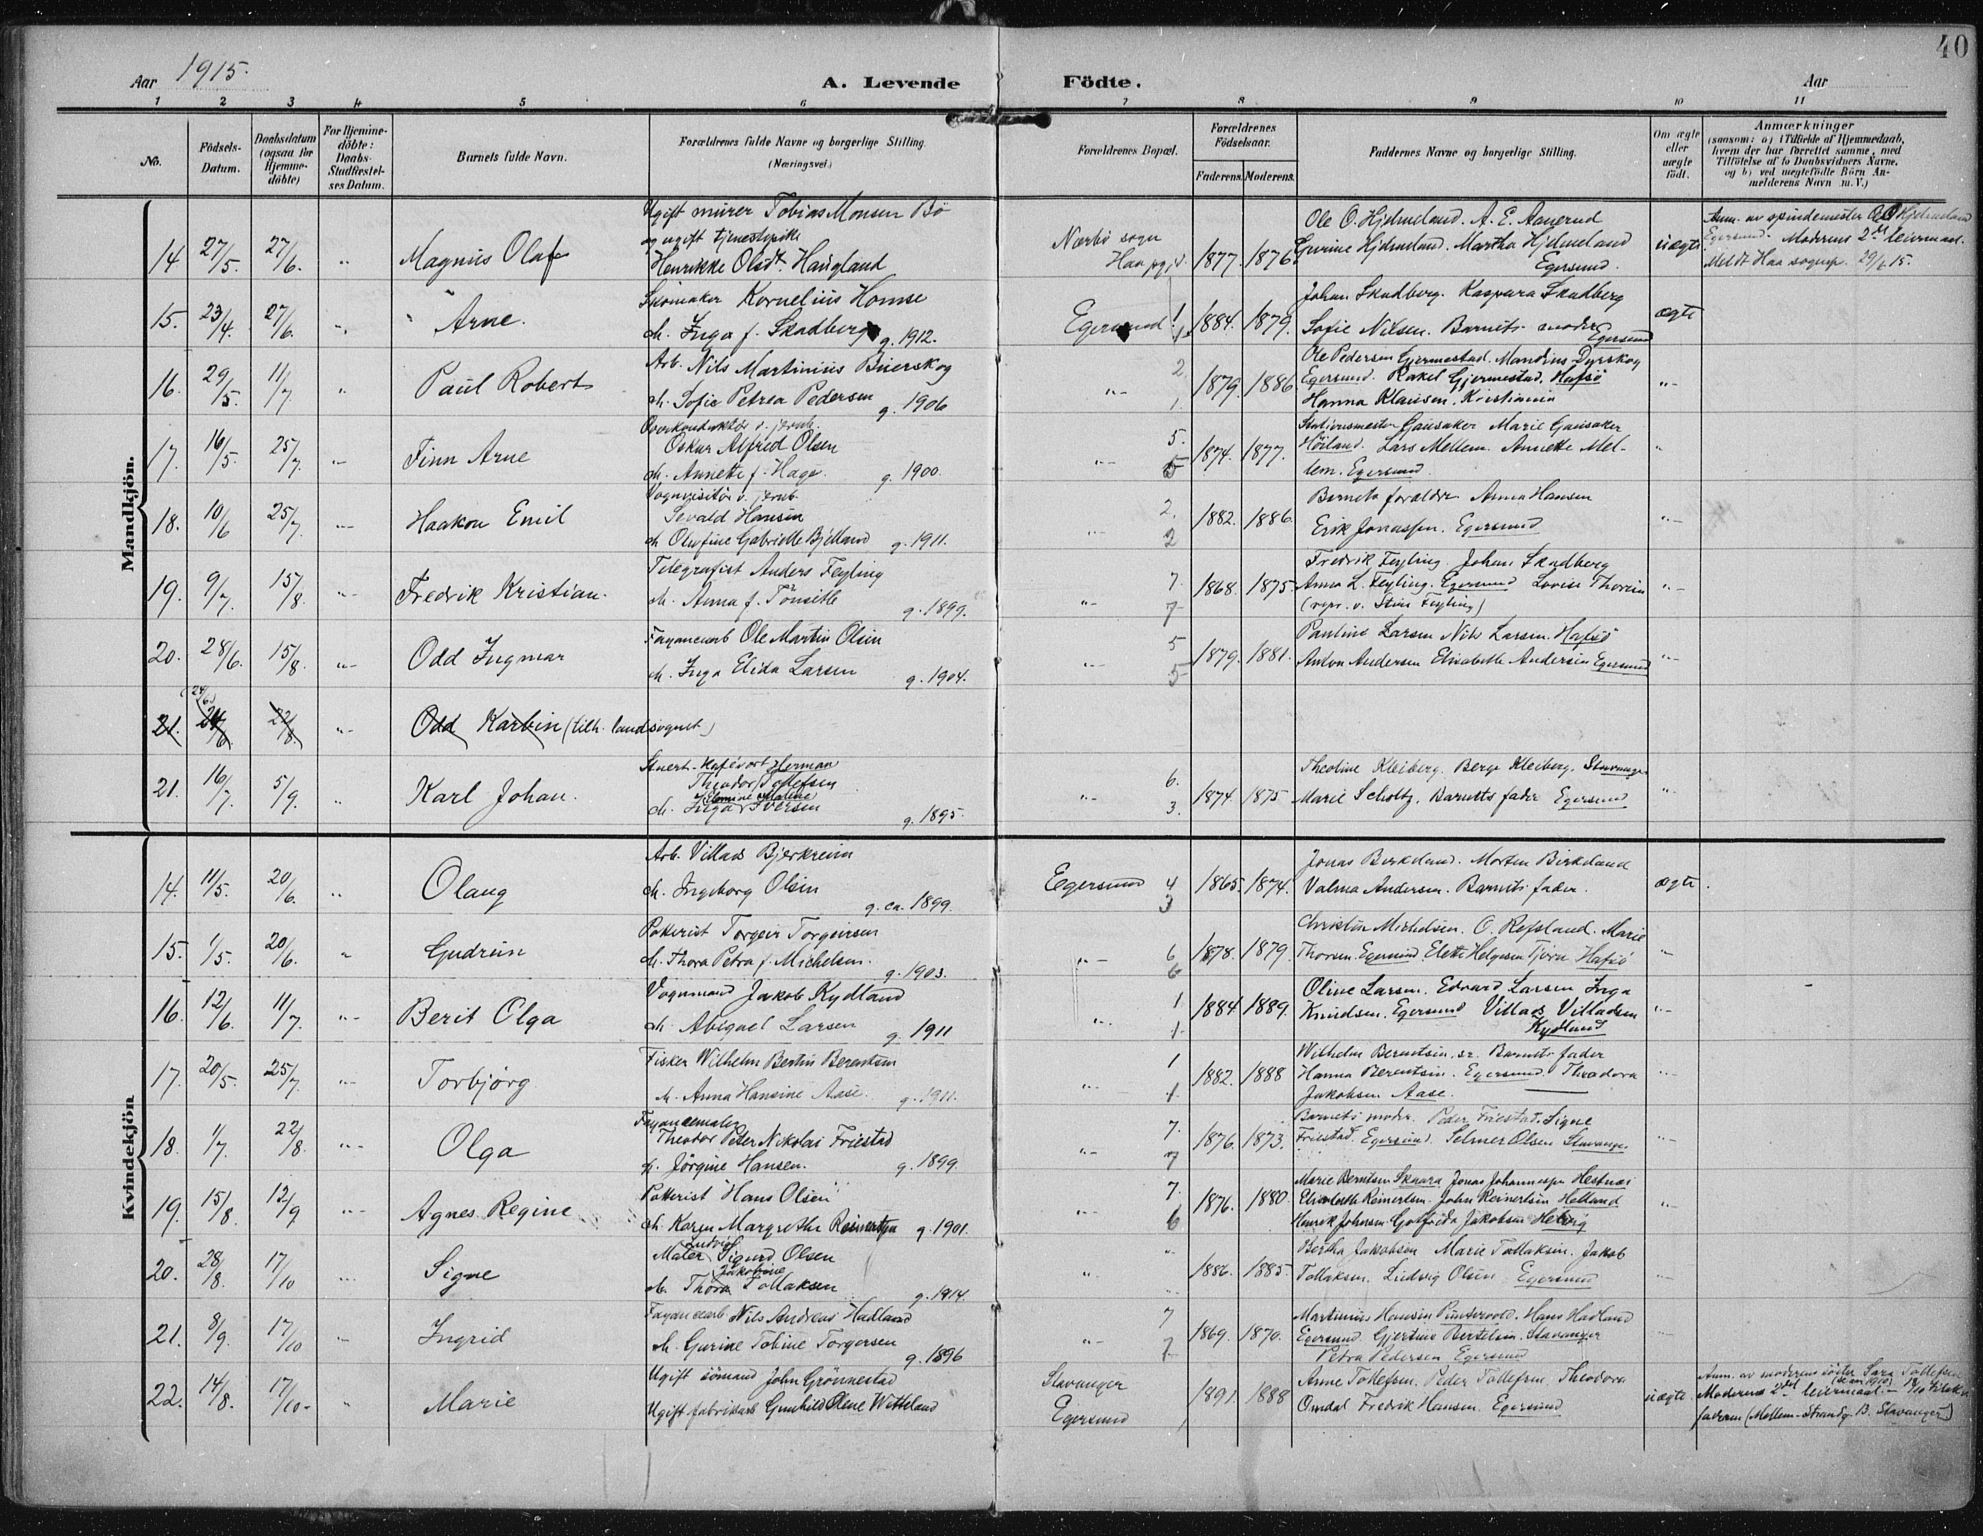 40
Aar 1915.
A. Levende Födte.
Aar
1 2 3 4 5 6 7 8 9 10 11
No.
Födsels-Datum.
Daabsdatum (ogsaa for Hjemme-döbte)
For Hjemme-döbte: Daabs-Stadfæstel-ses Datum.
Barnets fulde Navn.
Forældrenes fulde Navne og borgerlige Stilling. (Næringsvei.)
Forældrenes Bopæl.
Forældrenes Födselsaar.
Faderens. Moderens.
Faddernes Navne og borgerlige Stilling.
Om ægte eller uægte födt.
Anmærkninger
(saasom: a) i Tilfælde af Hjemmedaab,
hvem der har forrettet samme, med
Tilföielse af to Daabsvidners Navne,
og b) ved uegtefödte Börn An-
melderens Navn m. V.)
Mandkjön.
14. 27/5. 27/6. „ Magnus Olaf
Ugift murer Tobias Monsen Bö
og ugift tjenestepike
Henrikke Olsdt. Haugland
Nærbö sogn
Haa pgjd.
1877. 1876
Ole O. Hjelmeland. A. E. Aanerud
Gurine Hjelmeland. Martha Hjelmeland
Egersund.
uægte
Anm. av spindemester O. O. Hjelmeland
Egersund. Moderens 2det leiermaal.
Meldt Haa sogнеp. 29/6 15.
15. 23/4. 27/6. „ Arne.
Skomaker Kornelius Homse
og h. Inga f. Skadberg g. 1912.
Egersund 1 1
1884. 1879.
Johan Skadberg. Kaspara Skadberg
Sofie Nilsen. Barnets moder Egersund
ægte
16. 29/5. 11/7 „ Paul Robert
Arb. Nils Martinius Buerskog
h. Sofie Petrea Pedersen g. 1906
„ 2. 1.
1879. 1886
Ole Pedersen Gjermestad. Mandius Dyrskog
Egersund. Rakel Gjermestad, Hafsö
Hanna Klausen, Kristiania
„
17. 16/5. 25/7. „ Finn Arne
Overkonduktör v. jernb.
Oskar Alfred Olsen
h. Annette f. Hage. g. 1900.
„ 5. 5
1874. 1877.
Stationsmester Gausaker Marie Gausaker
Höiland. Lars Mellem. Annette Mel-
lem. Egersund.
„
18. 10/6 25/7. „ Haakon Emil
Vognvisitör v. jernb.
Sevald Hansen
h. Olufine Gabrielle Bjelland g. 1911.
„ 2. 2
1882. 1886.
Barnets forældre Anna Hansen
Erik Jonassen. Egersund
„
19. 9/7. 15/8. „ Fredrik Kristian.
Telegrafist Anders Feyling
h. Anna f. Tönseth g. 1899.
„ 7. 7
1868. 1875
Fredrik Feyling Johan Skadberg
Anna L. Feyling. Egersund Lovise Thorsen
(repr. v. Stina Feyling)
„
20. 28/6. 15/8. „ Odd Ingmar
Fayancearb Ole Martin Olsen
h. Inga Elida Larsen g. 1904.
„ 5 5
1879. 1881.
Pauline Larsen Nils Larsen. Hafsö
Anton Andersen Elisabeth Andersen Egersund
„
21. 24/6. 22/8. „ Odd Karbin (tilh. landsognet)
21. 16/7. 5/9. „ Karl Johan.
Stuert-Kafévert Herman
Theodor Tollefsen
Elomine Maline
h. Inga Iversen g. 1895.
„ 6. 3.
1874. 1875
Theoline Kleiberg. Berge Kleiberg. Stavanger
Marie Scholtz. Barnets fader Egersund
„
Kvindekjön
14. 11/5. 20/6. „ Olaug
Arb. Villads Bjerkreim
h. Ingeborg Olsen g. ca. 1899.
Egersund 4 3
1865. 1874.
Jonas Birkeland. Morten Birkeland
Valma Andersen. Barnets fader.
ægte.
15. 1/5. 20/6. „ Gudrun
Pakerist Torgeir Torgeirsen
h. Thora Petra f. Michelsen. g. 1903.
„ 6 6
1878. 1879.
Christian Michelsen. O. Refsland. Marie
Thorsen. Egersund Elette Helgesen Tjörn Hafsö
„
16. 12/6. 11/7. „ Berit Olga
Vognmand Jakob Kydland
h. Abigael Larsen g. 1911
„ 1 1.
1884 1889.
Olive Larsen. Edvard Larsen Inga
Knudsen. Egersund Villads Villadsen
Kydland
„
17. 20/5. 25/7. „ Torbjörg
Fisker Wilhelm Bertin Berentsen
h. Anna Hansine Aase. g. 1911.
„ 1 1.
1882. 1888
Wilhelm Berentsen. sr. Barnets fader
Hanna Berentsen. Egersund. Theodora
Jakobsen Aase.
„
18. 1/7. 22/8. „ Olga
Fayancemaler
Theodor Peter Nikolai Friestad
h. Jörgine Hansen. g. 1899.
„ 7. 7
1876. 1873.
Barnets moder. Peder Friestad. Signe
Friestad. Egersund. Selmer Olsen Stavanger
„
19. 15/8. 12/9 „ Agnes Regine
Pakerist Hans Olsen
h. Karen Margrethe Reinertsen g. 1901.
„ 7. 6
1876. 1880.
Marie Berntsen Skaara Jonas Johannessen Hestnes
Elisabeth Reinertsen. John Reinertsen Helland
Henrik Johnsen Golfrida Jakobsen
„
20. 28/8. 17/10 „ Signe
Maler Ludvig Sigurd Olsen
Jakobine
h. Thora Tollaksen g. 1914.
„
1886. 1885.
Bertha Jakobsen Marie Tollaksen. Jakob
Tollaksen. Ludvig Olsen Egersund
„
21. 8/9. 17/10 „ Ingrid
Fayancearb Nils Andreas Hadland
h. Gurine Tobine Torgersen g. 1896
„ 7 7
1869. 1870.
Martinius Hansen Puntervold. Hans Hadland
Egersund. Gjertine Bertelsen. Stavanger
Petra Pedersen Egersund
„
22. 14/8. 17/10 „ Marie
Ugift sömand John Grönnestad
Ugift fabrikarb Gunhild Olene Wetteland
Stavanger
Egersund
1891. 1888
Anne Tollefsen. Peder Tollefsen. Theodora
Omdal Fredrik Hansen. Egersund
uægte.
Anm. av moderens söster Sara Tollefsen
Moderens 2det leiermaal (1ste an 1910)
fadren (Mellem-Strandg. B. Stavanger)